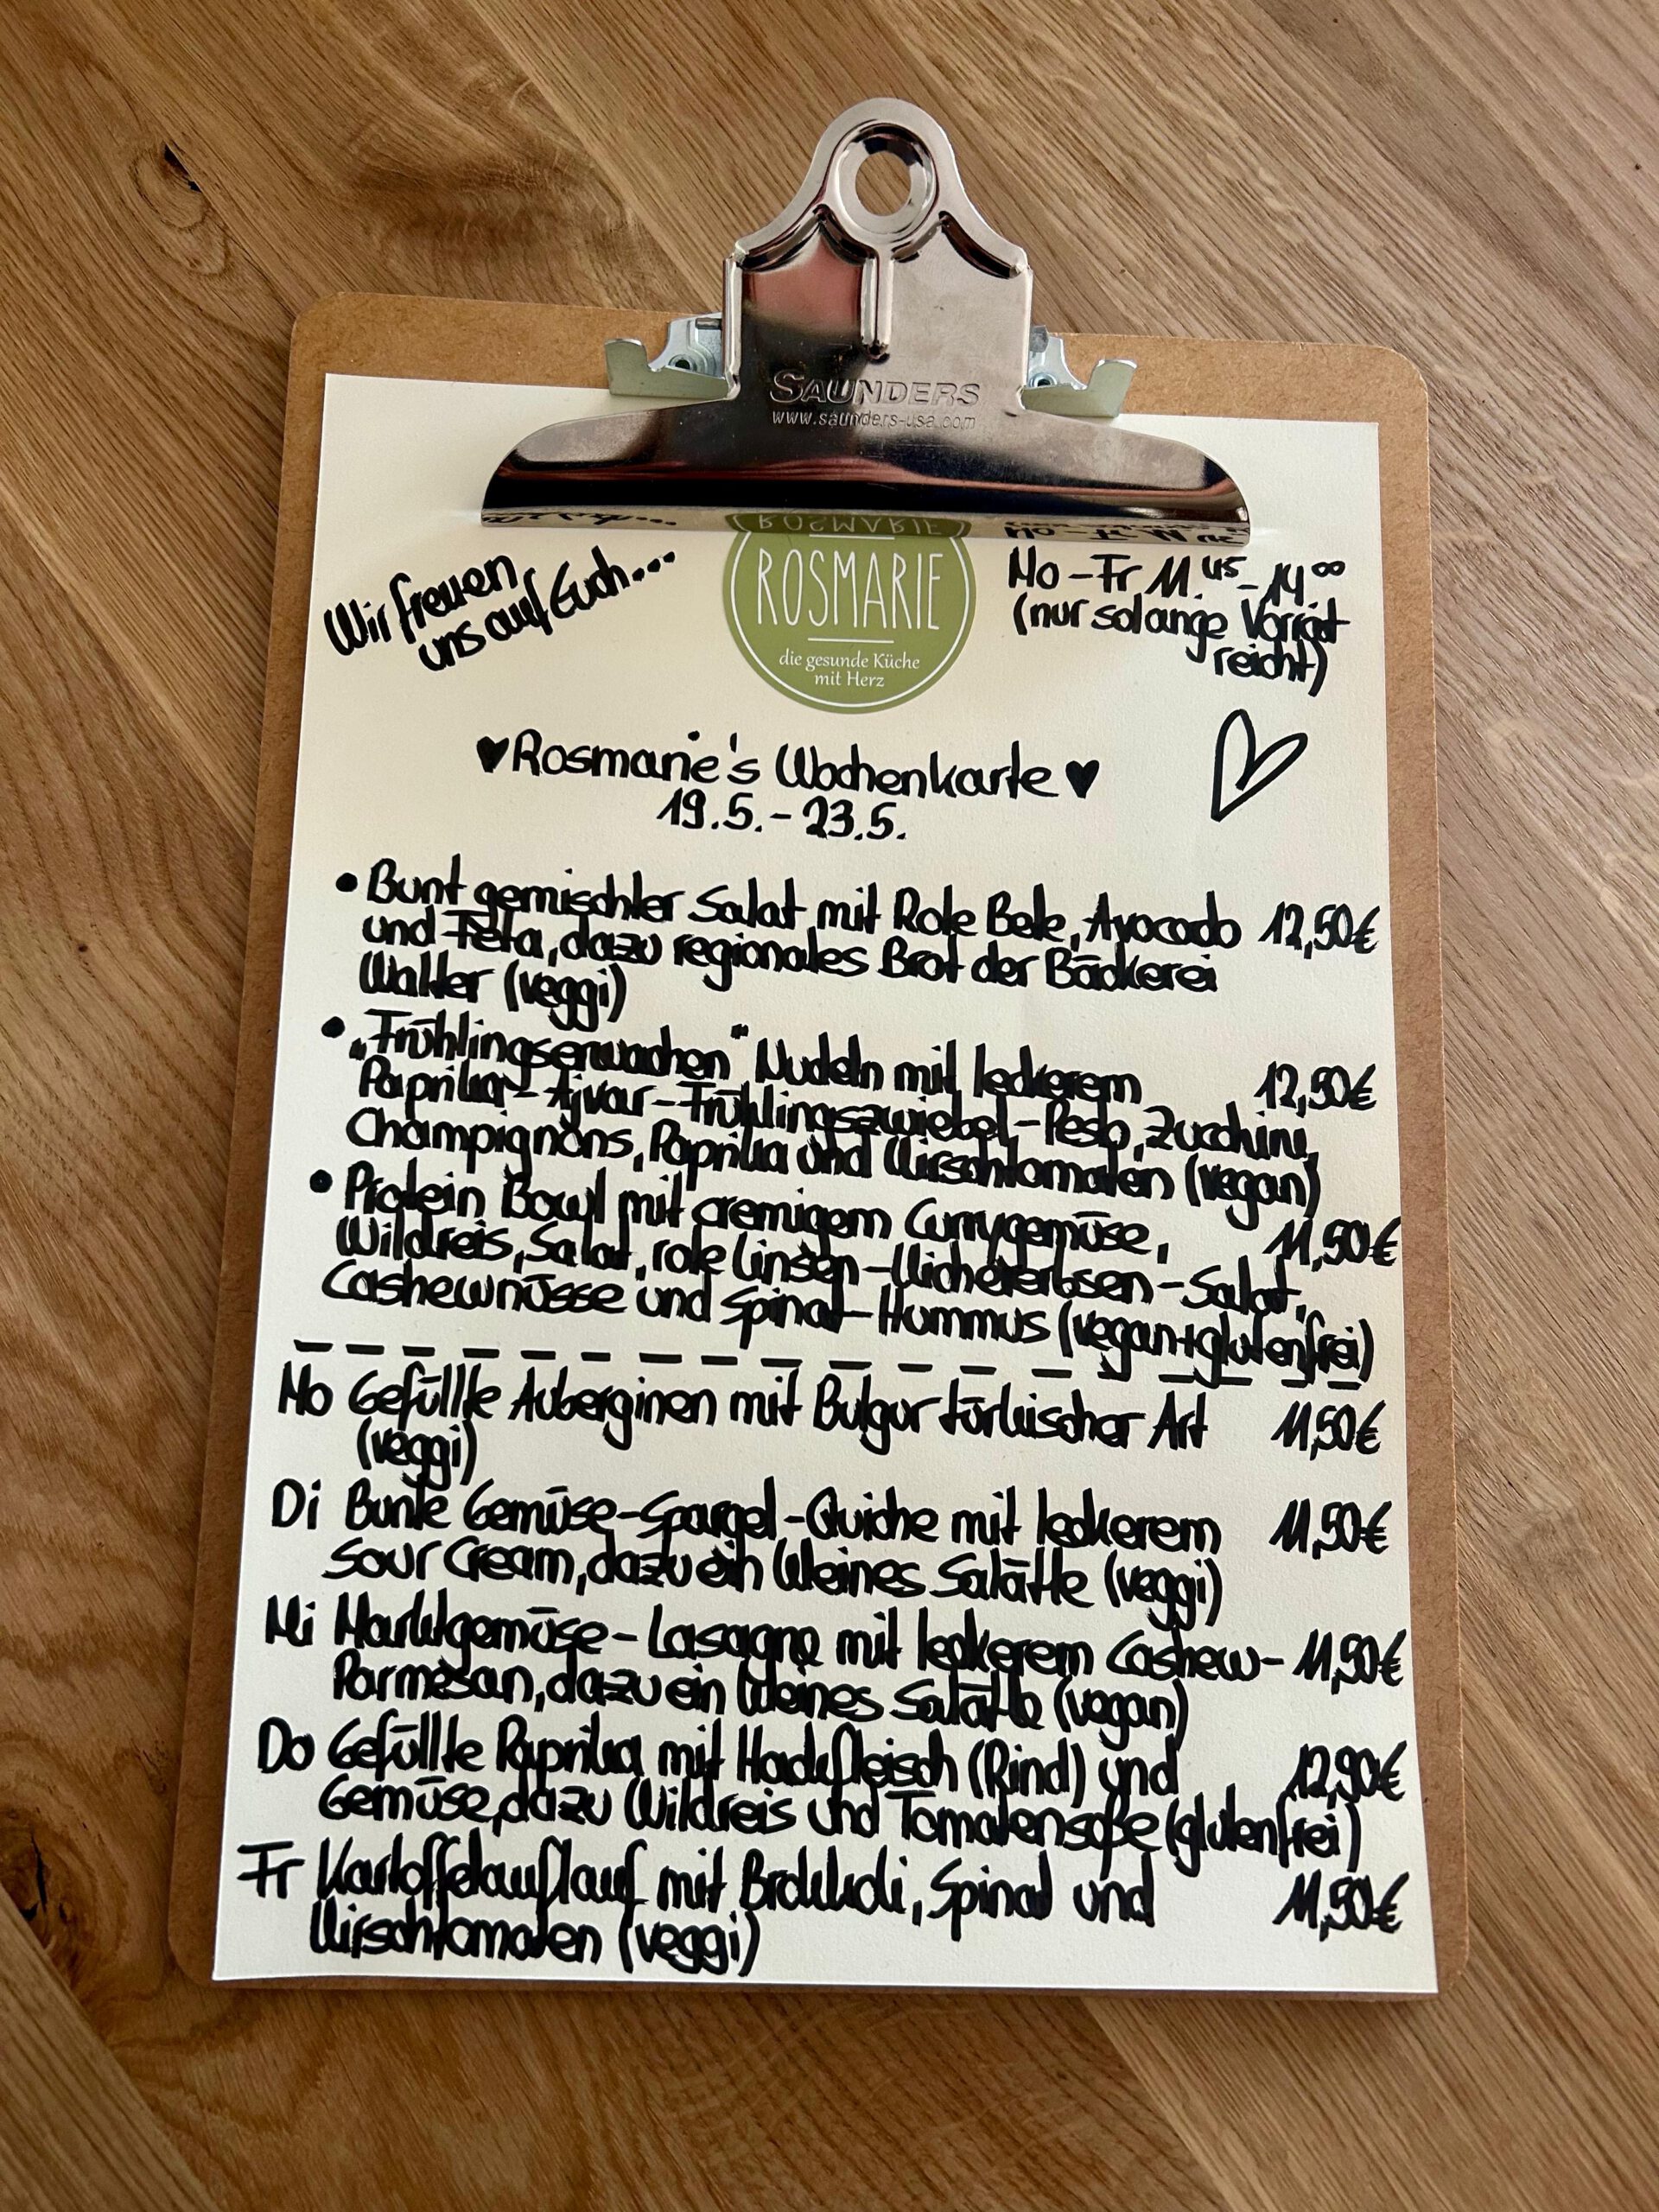 SAUNDERS
www.saunders-usa.com
ROSMARIE
die gesunde Küche
mit Herz
Wir freuen
uns auf Euch...
Mo-Fr 11.45-14.00
(nur solange Vorrat
reicht)
♥Rosmarie's Wochenkarte♥
19.5.-23.5.
• Bunt gemischter Salat mit Rote Bete, Avocado 12,50€
und Feta, dazu regionales Brot der Bäckerei
Walter (veggi)
• „Frühlingserwachen" Nudeln mit leckerem 12,50€
Paprika-Ajvar-Frühlingszwiebel-Pesto, Zucchini,
Champignons, Paprika und Kirschtomaten (vegan)
• Protein Bowl mit cremigem Currygemüse, 11,50€
Wildreis, Salat, rote Linsen-Kichererbsen-Salat,
Cashewnüsse und Spinat-Hummus (vegan+glutenfrei)
Mo Gefüllte Auberginen mit Bulgur türkischer Art 11,50€
(veggi)
Di Bunte Gemüse-Spargel-Quiche mit leckerem 11,50€
Sour Cream, dazu ein kleines Salätle (veggi)
Mi Marktgemüse-Lasagne mit leckerem Cashew- 11,50€
Parmesan, dazu ein kleines Salätle (vegan)
Do Gefüllte Paprika mit Hackfleisch (Rind) und 12,90€
Gemüse, dazu Wildreis und Tomatensoße (glutenfrei)
Fr Kartoffelauflauf mit Brokkoli, Spinat und 11,50€
Kirschtomaten (veggi)